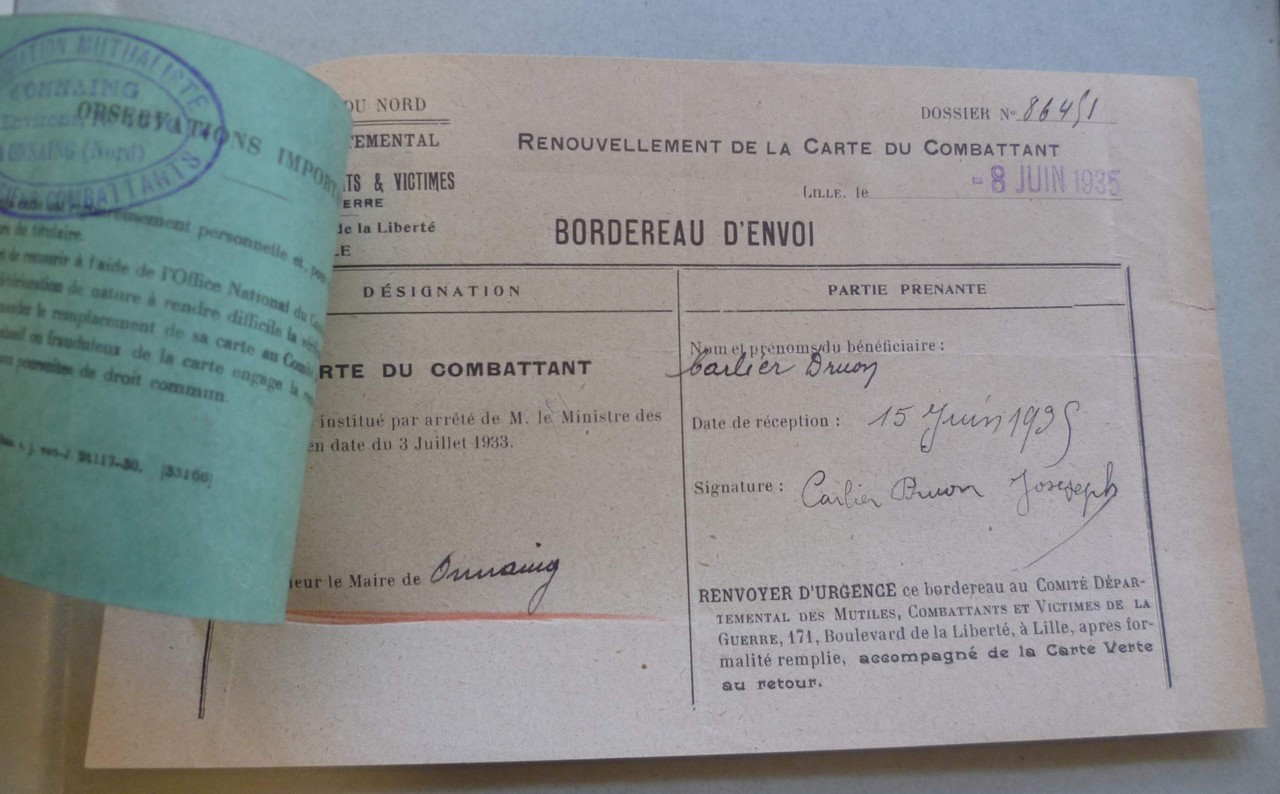 ATION MUTUALISTE
ONNAING
Environs
ONNAING (Nord)
COMBATTANTS
OBSERVATIONS IMPORT
personnelle et, pour
de titulaire.
de recourir à l'aide de l'Office National du
de nature à rendre difficile la
le remplacement de sa carte au Comité
ou frauduleux de la carte engage la
poursuites de droit commun.
34117-30. [33166]
DU NORD
TEMENTAL
TS & VICTIMES
ERRE
de la Liberté
LE
DOSSIER No 86451
RENOUVELLEMENT DE LA CARTE DU COMBATTANT
LILLE, le - 8 JUIN 1935
BORDEREAU D'ENVOI
DÉSIGNATION
RTE DU COMBATTANT
institué par arrêté de M. le Ministre des
en date du 3 Juillet 1933.
ieur le Maire de Onnaing
PARTIE PRENANTE
Nom et prénoms du bénéficiaire :
Carlier Druon
Date de réception : 15 Juin 1935
Signature : Carlier Druon Joseseph
RENVOYER D'URGENCE ce bordereau au COMITÉ DÉPAR-
TEMENTAL DES MUTILES, COMBATTANTS ET VICTIMES DE LA
GUERRE, 171, Boulevard de la Liberté, à Lille, après for-
malité remplie, accompagné de la Carte Verte
au retour.